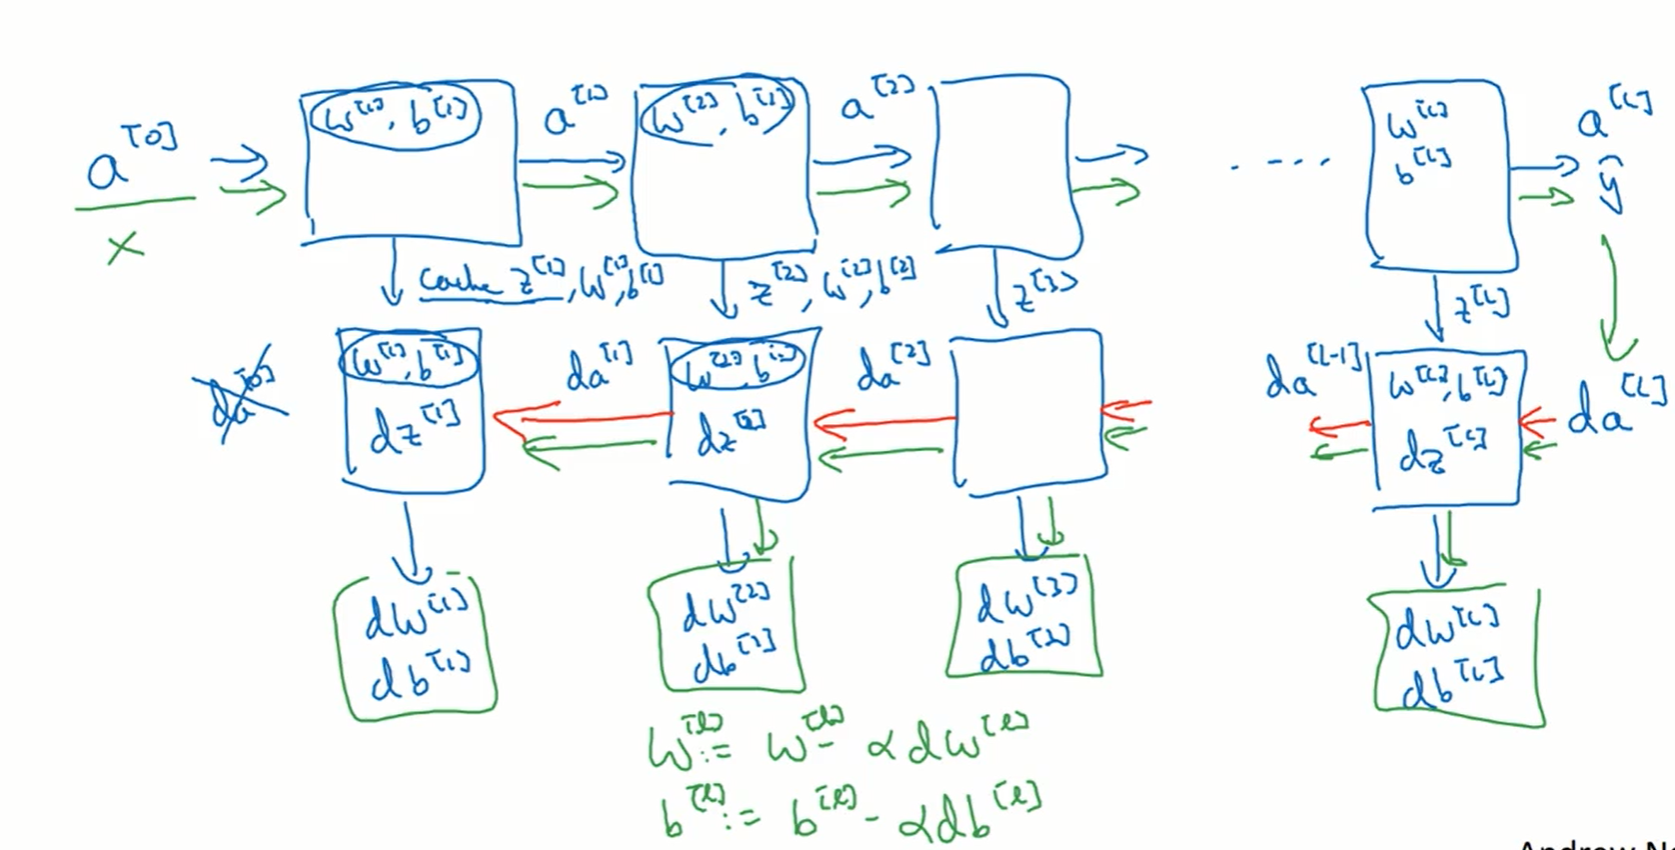 a^[0]
x
w^[1], b^[1]
a^[1]
w^[2], b^[1]
a^[2]
w^[L]
b^[L]
a^[L]
ŷ
cache z^[1], w^[1], b^[1]
z^[2], w^[2], b^[2]
z^[3]
z^[L]
da^[0]
w^[1], b^[1]
dz^[1]
da^[1]
w^[2], b^[2]
dz^[2]
da^[2]
da^[L-1]
w^[L], b^[L]
dz^[L]
da^[L]
dw^[1]
db^[1]
dw^[2]
db^[2]
dw^[3]
db^[3]
dw^[L]
db^[L]
W^[l] := W^[l] - αdw^[l]
b^[l] := b^[l] - αdb^[l]
Andrew